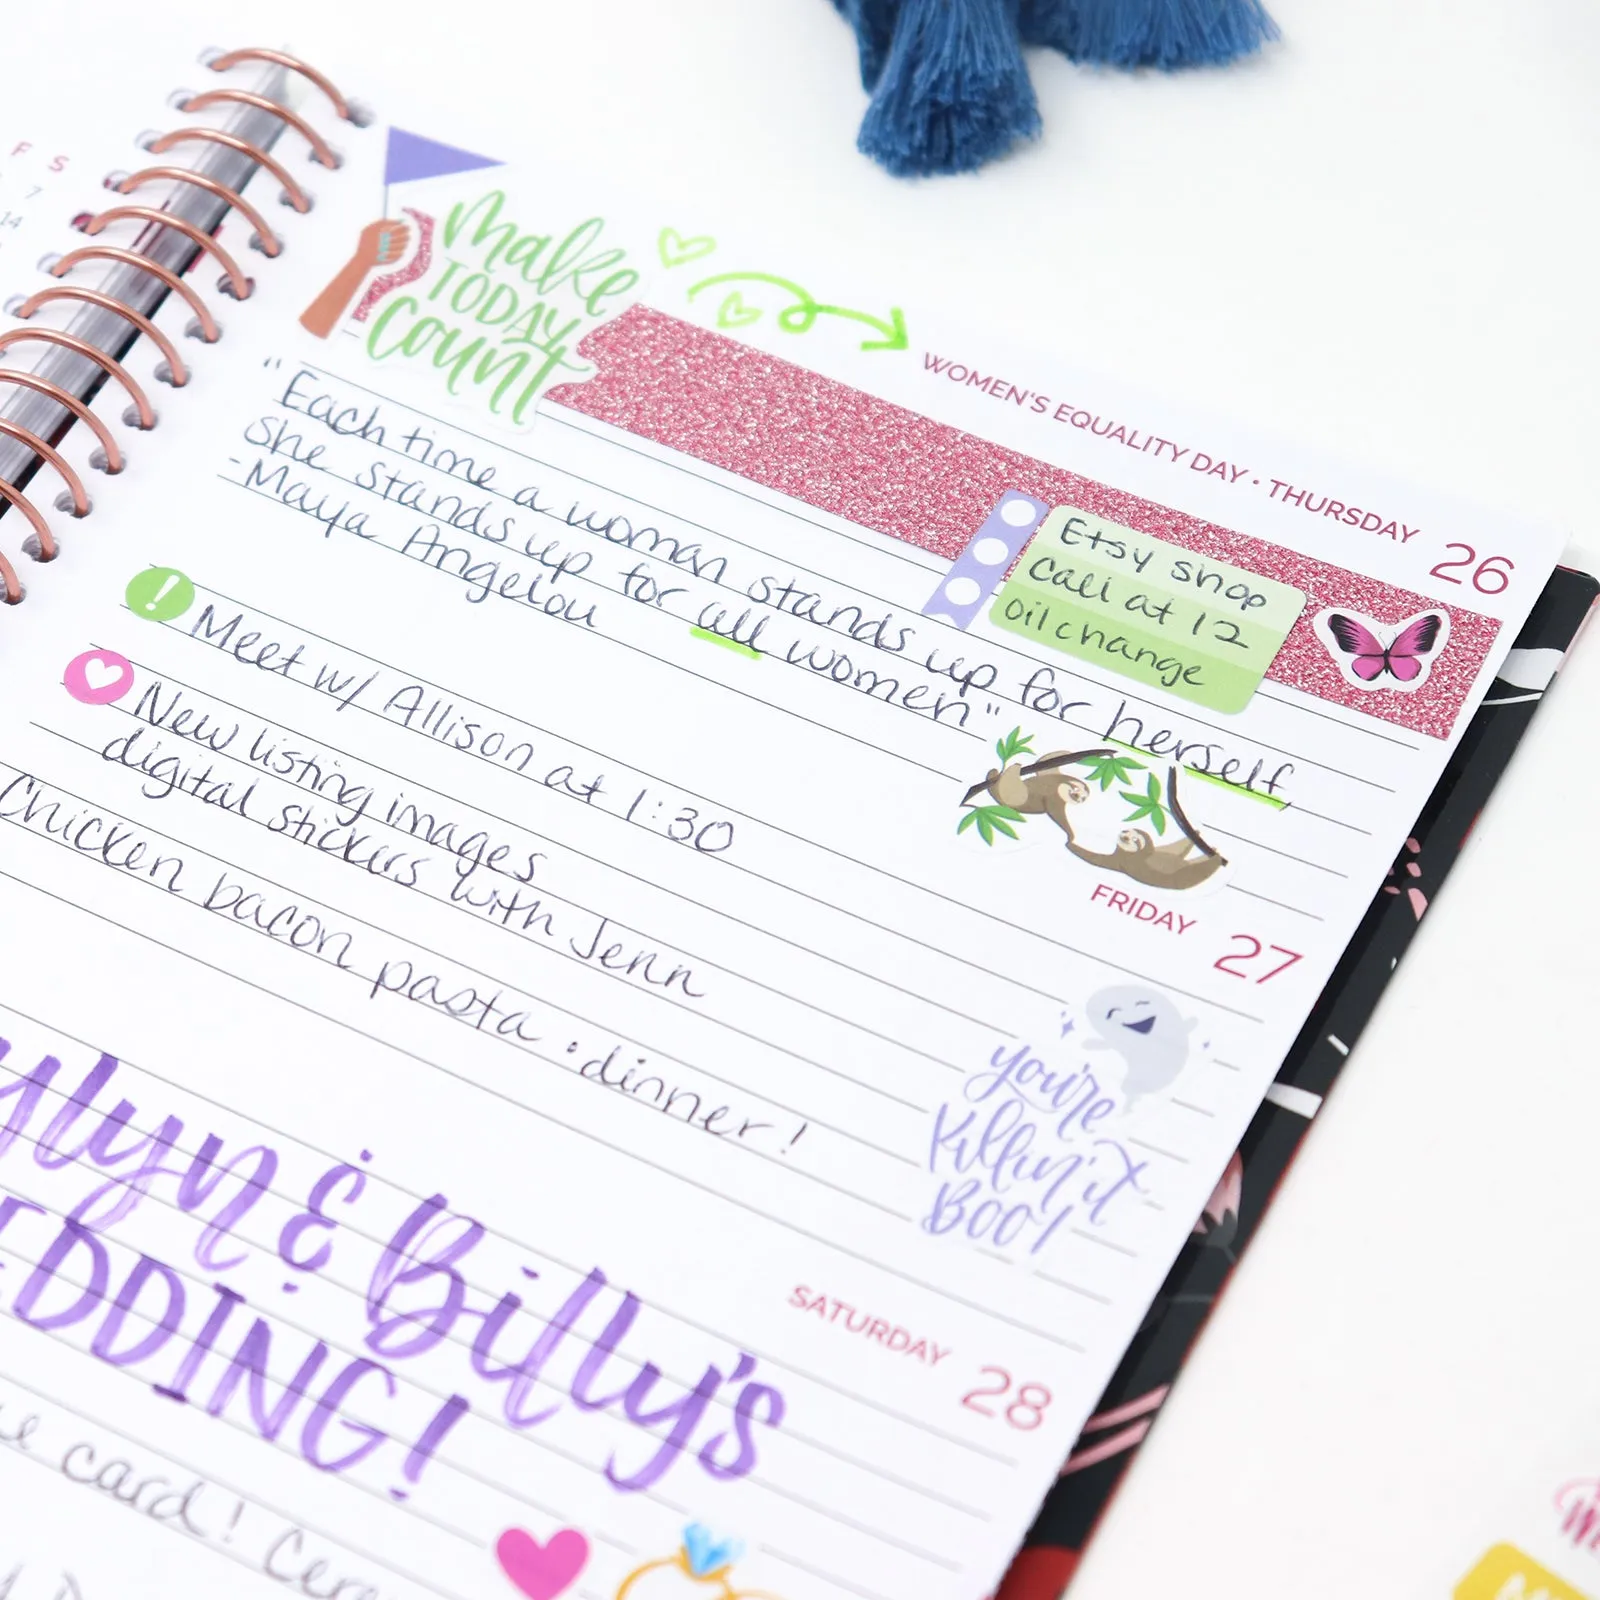 F S
7
14
make
TODAY
count
WOMEN'S EQUALITY DAY • THURSDAY 26
Etsy shop
call at 12
oil change
"Each time a woman stands up for herself,
she stands up for all women"
-Maya Angelou
! Meet w/ Allison at 1:30
FRIDAY 27
New listing images
digital stickers with Jenn
Chicken bacon pasta • dinner!
you're
killin' it
BOO!
SATURDAY 28
& Billy's
card!